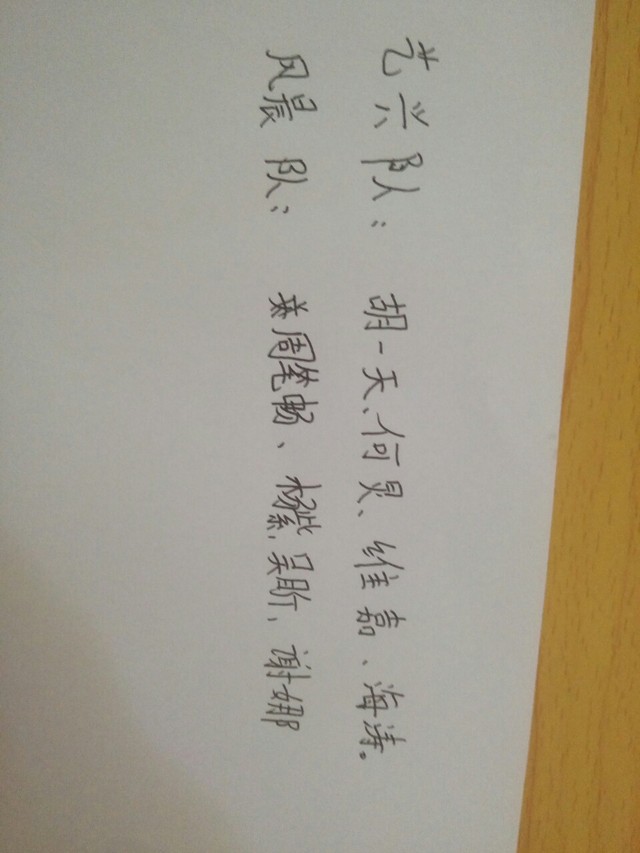 艺兴队：胡一天、何炅、维嘉、海涛。
风晨队：周笔畅、杨紫、吴昕、谢娜